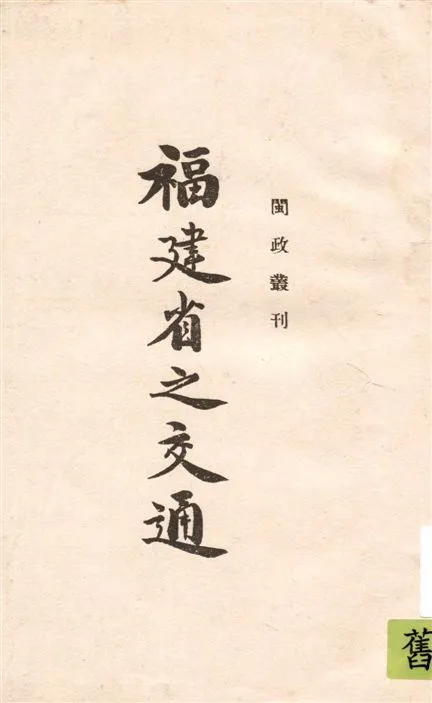 閩政叢刊
福建省之交通
舊